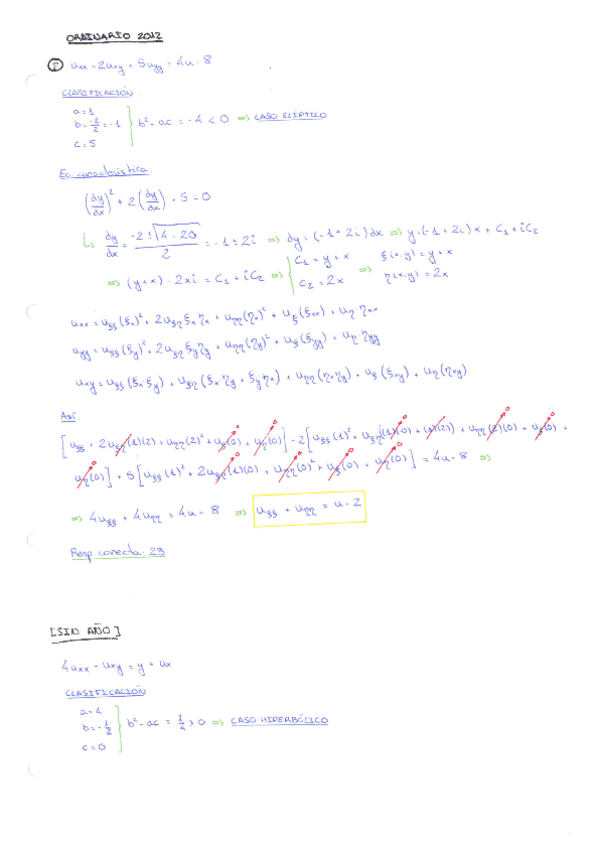 ORDINARIO 2012
① uxx - 2uxy + 5uyy = 4u - 8
CLASIFICACIÓN
a = 1
b = -2/2 = -1 } b² - ac = -4 < 0 ⇒ CASO ELÍPTICO
c = 5
Ec. característica:
(dy/dx)² + 2(dy/dx) + 5 = 0
↳ dy/dx = (-2 ± √(4 - 20))/2 = -1 ± 2i ⇒ dy = (-1 + 2i)dx ⇒ y = (-1 + 2i)x + C₁ + iC₂
⇒ (y+x) - 2xi = C₁ + iC₂ ⇒ { C₁ = y + x ⇒ ξ(x,y) = y + x
C₂ = 2x η(x,y) = 2x
uxx = uξξ(ξx)² + 2uξη ξx ηx + uηη(ηx)² + uξ(ξxx) + uη ηxx
uyy = uξξ(ξy)² + 2uξη ξy ηy + uηη(ηy)² + uξ(ξyy) + uη ηyy
uxy = uξξ(ξx ξy) + uξη(ξx ηy + ξy ηx) + uηη(ηx ηy) + uξ(ξxy) + uη(ηxy)
Así:
[uξξ + 2uξη(1)(2) + uηη(2)² + uξ(0) + uη(0)] - 2[uξξ(1)² + uξη((1)(0) + (1)(2)) + uηη(2)(0) + uξ(0) +
uη(0)] + 5[uξξ(1)² + 2uξη(1)(0) + uηη(0)² + uξ(0) + uη(0)] = 4u - 8 ⇒
⇒ 4uξξ + 4uηη = 4u - 8 ⇒ uξξ + uηη = u - 2
Resp correcta: 23
[SIN AÑO]
4uxx - uxy = y + ux
CLASIFICACIÓN
a = 4
b = -1/2 } b² - ac = 1/4 > 0 ⇒ CASO HIPERBÓLICO
c = 0